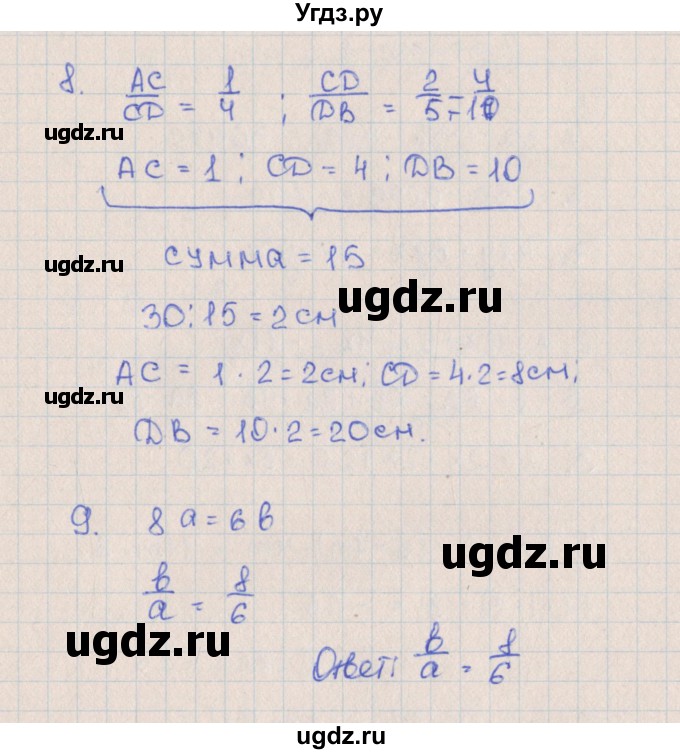 Угдз.ру
8. AC/CD = 1/4 ; CD/DB = 2/5 = 4/10
ugdz.ru
AC = 1 ; CD = 4 ; DB = 10
сумма = 15
ugdz.ru
ugdz.ru
30 : 15 = 2 см
AC = 1 · 2 = 2 см ; CD = 4 · 2 = 8 см ;
ugdz.ru
DB = 10 · 2 = 20 см.
9. 8 a = 6 b
ugdz.ru
b/a = 8/6
ugdz.ru
Ответ: b/a = 8/6
ugdz.ru